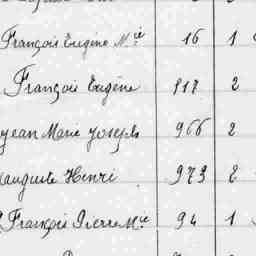 François Eugène M.ie 16 1
François Eugène 918 2
Jean Marie Joseph 966 2
Auguste Henri 973 2
François Pierre M.ie 94 1